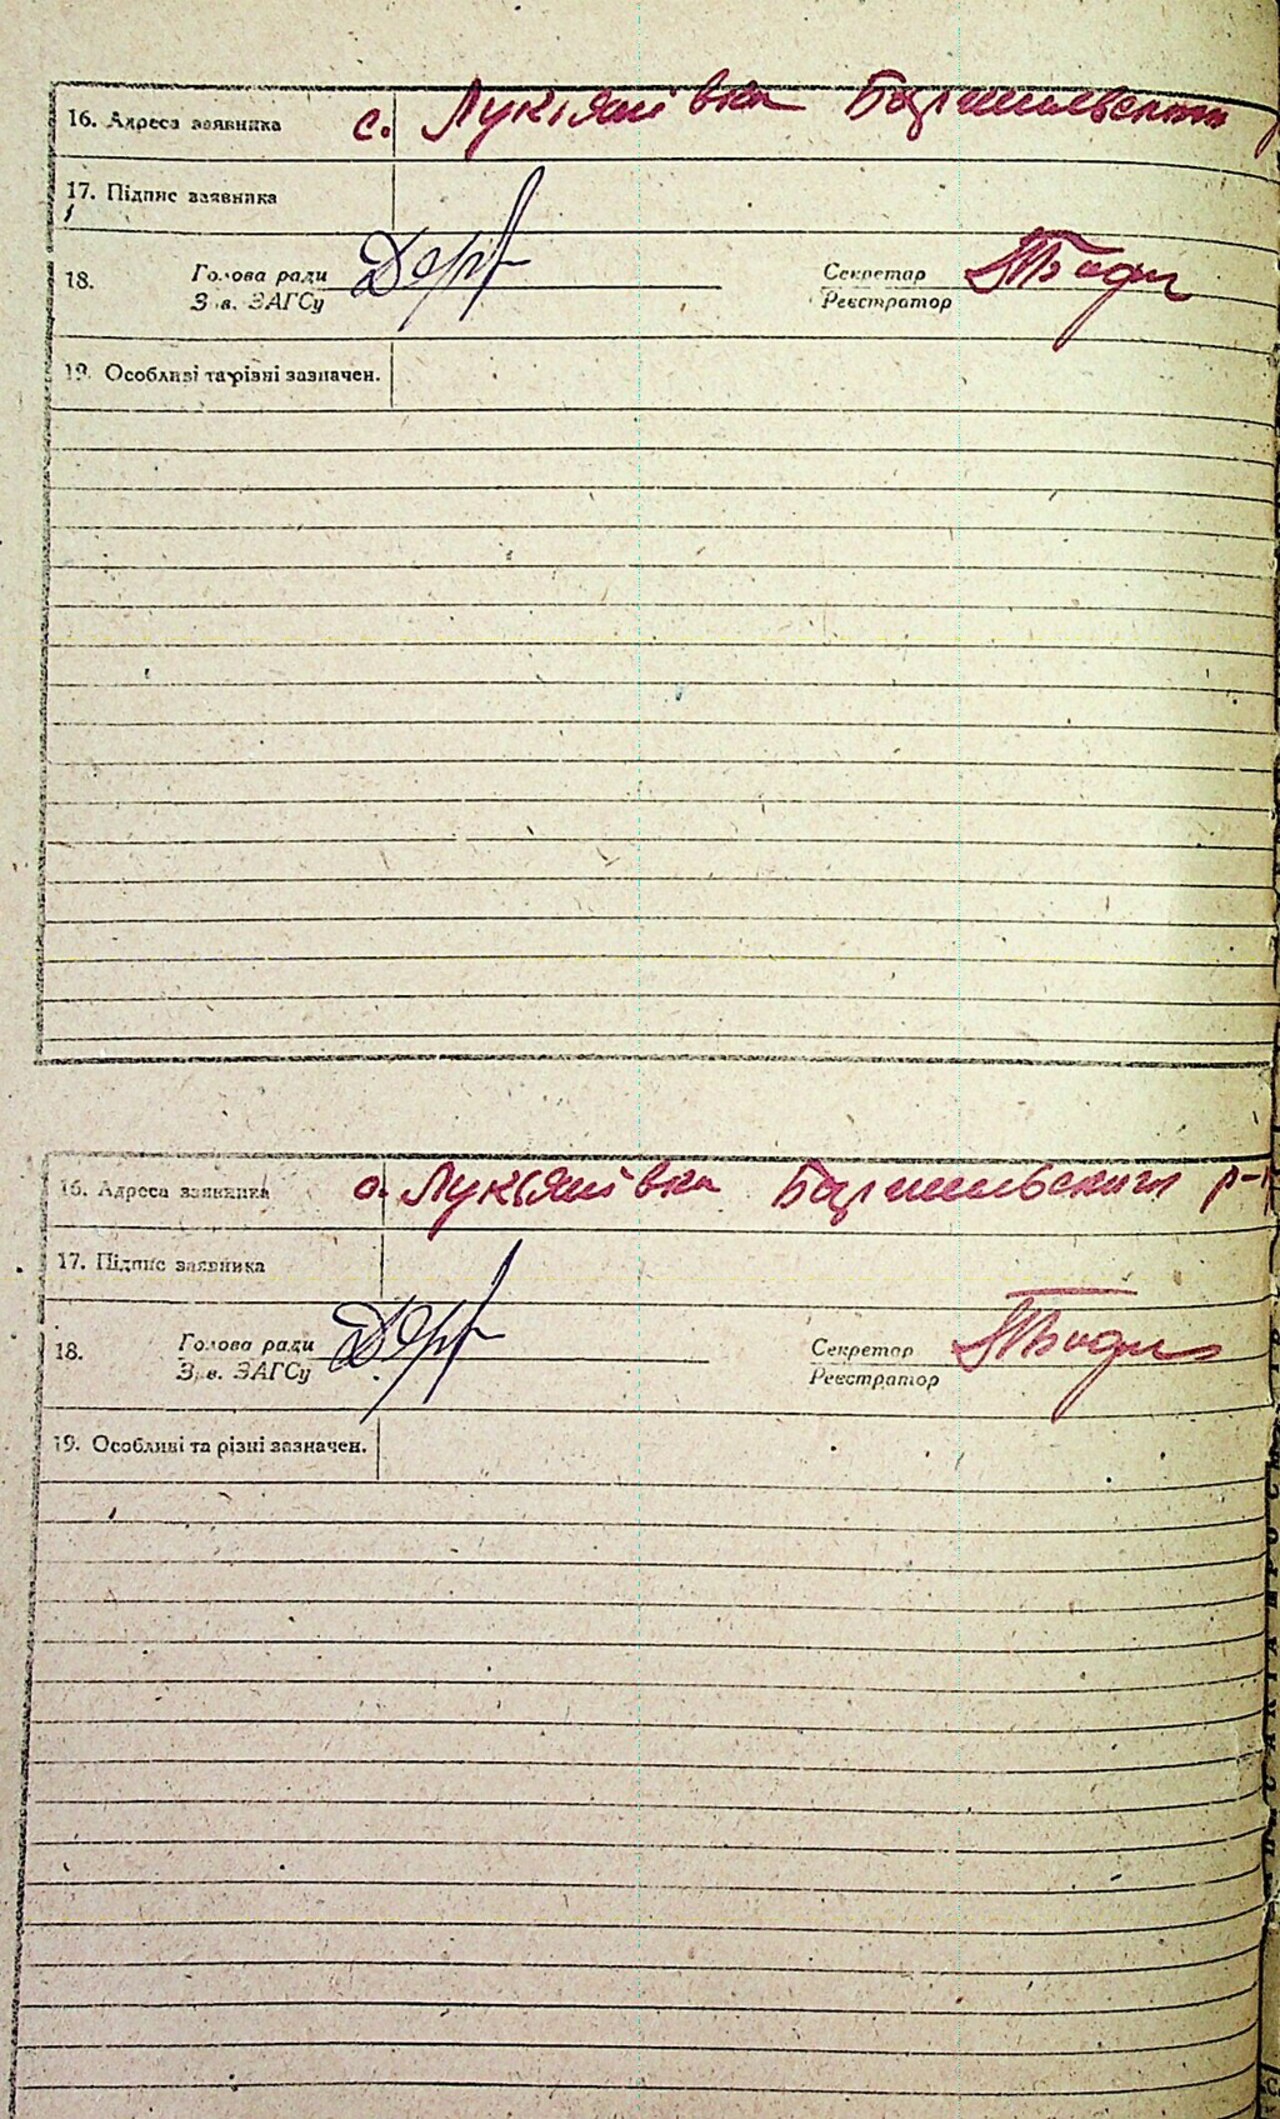 16. Адреса заявника с. Лук'янівка Баришівського
17. Підпис заявника
18. Голова ради Секретар
Зав. ЗАГСу Реєстратор
19. Особливі та різні зазначен.
16. Адреса заявника с. Лук'янівка Баришівського р-н
17. Підпис заявника
18. Голова ради Секретар
Зав. ЗАГСу Реєстратор
19. Особливі та різні зазначен.